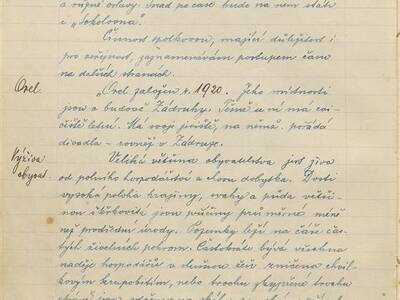 a různé oslavy. Snad po čase bude na něm státi
i „Sokolovna".
Činnost spolkovou, mající důležitost i
pro veřejnost, zaznamenávám postupem času
na dalších stranách.
Orel. „Orel založen r. 1920. Jeho místnosti
jsou v budově Zádruhy. Těmě u ní má cvi-
čiště letní. Má svoje jeviště, na němž pořádá
divadla - rovněž v Zádruze.
Výživa Veliká většina obyvatelstva jest živa
obyvat. od polního hospodářství a chovu dobytka. Dosti
vysoká poloha krajiny, svahy a půda větši-
nou štěrkovitá jsou příčiny průměrně méně
než prostřední úrody. Pozemky leží na čáře čas-
tých živelních pohrom. Častokráte bývá všechna
naděje hospodářů v slušnou žeň zničena chvil-
kovým krupobitím, nebo trochu zkypřené trochu